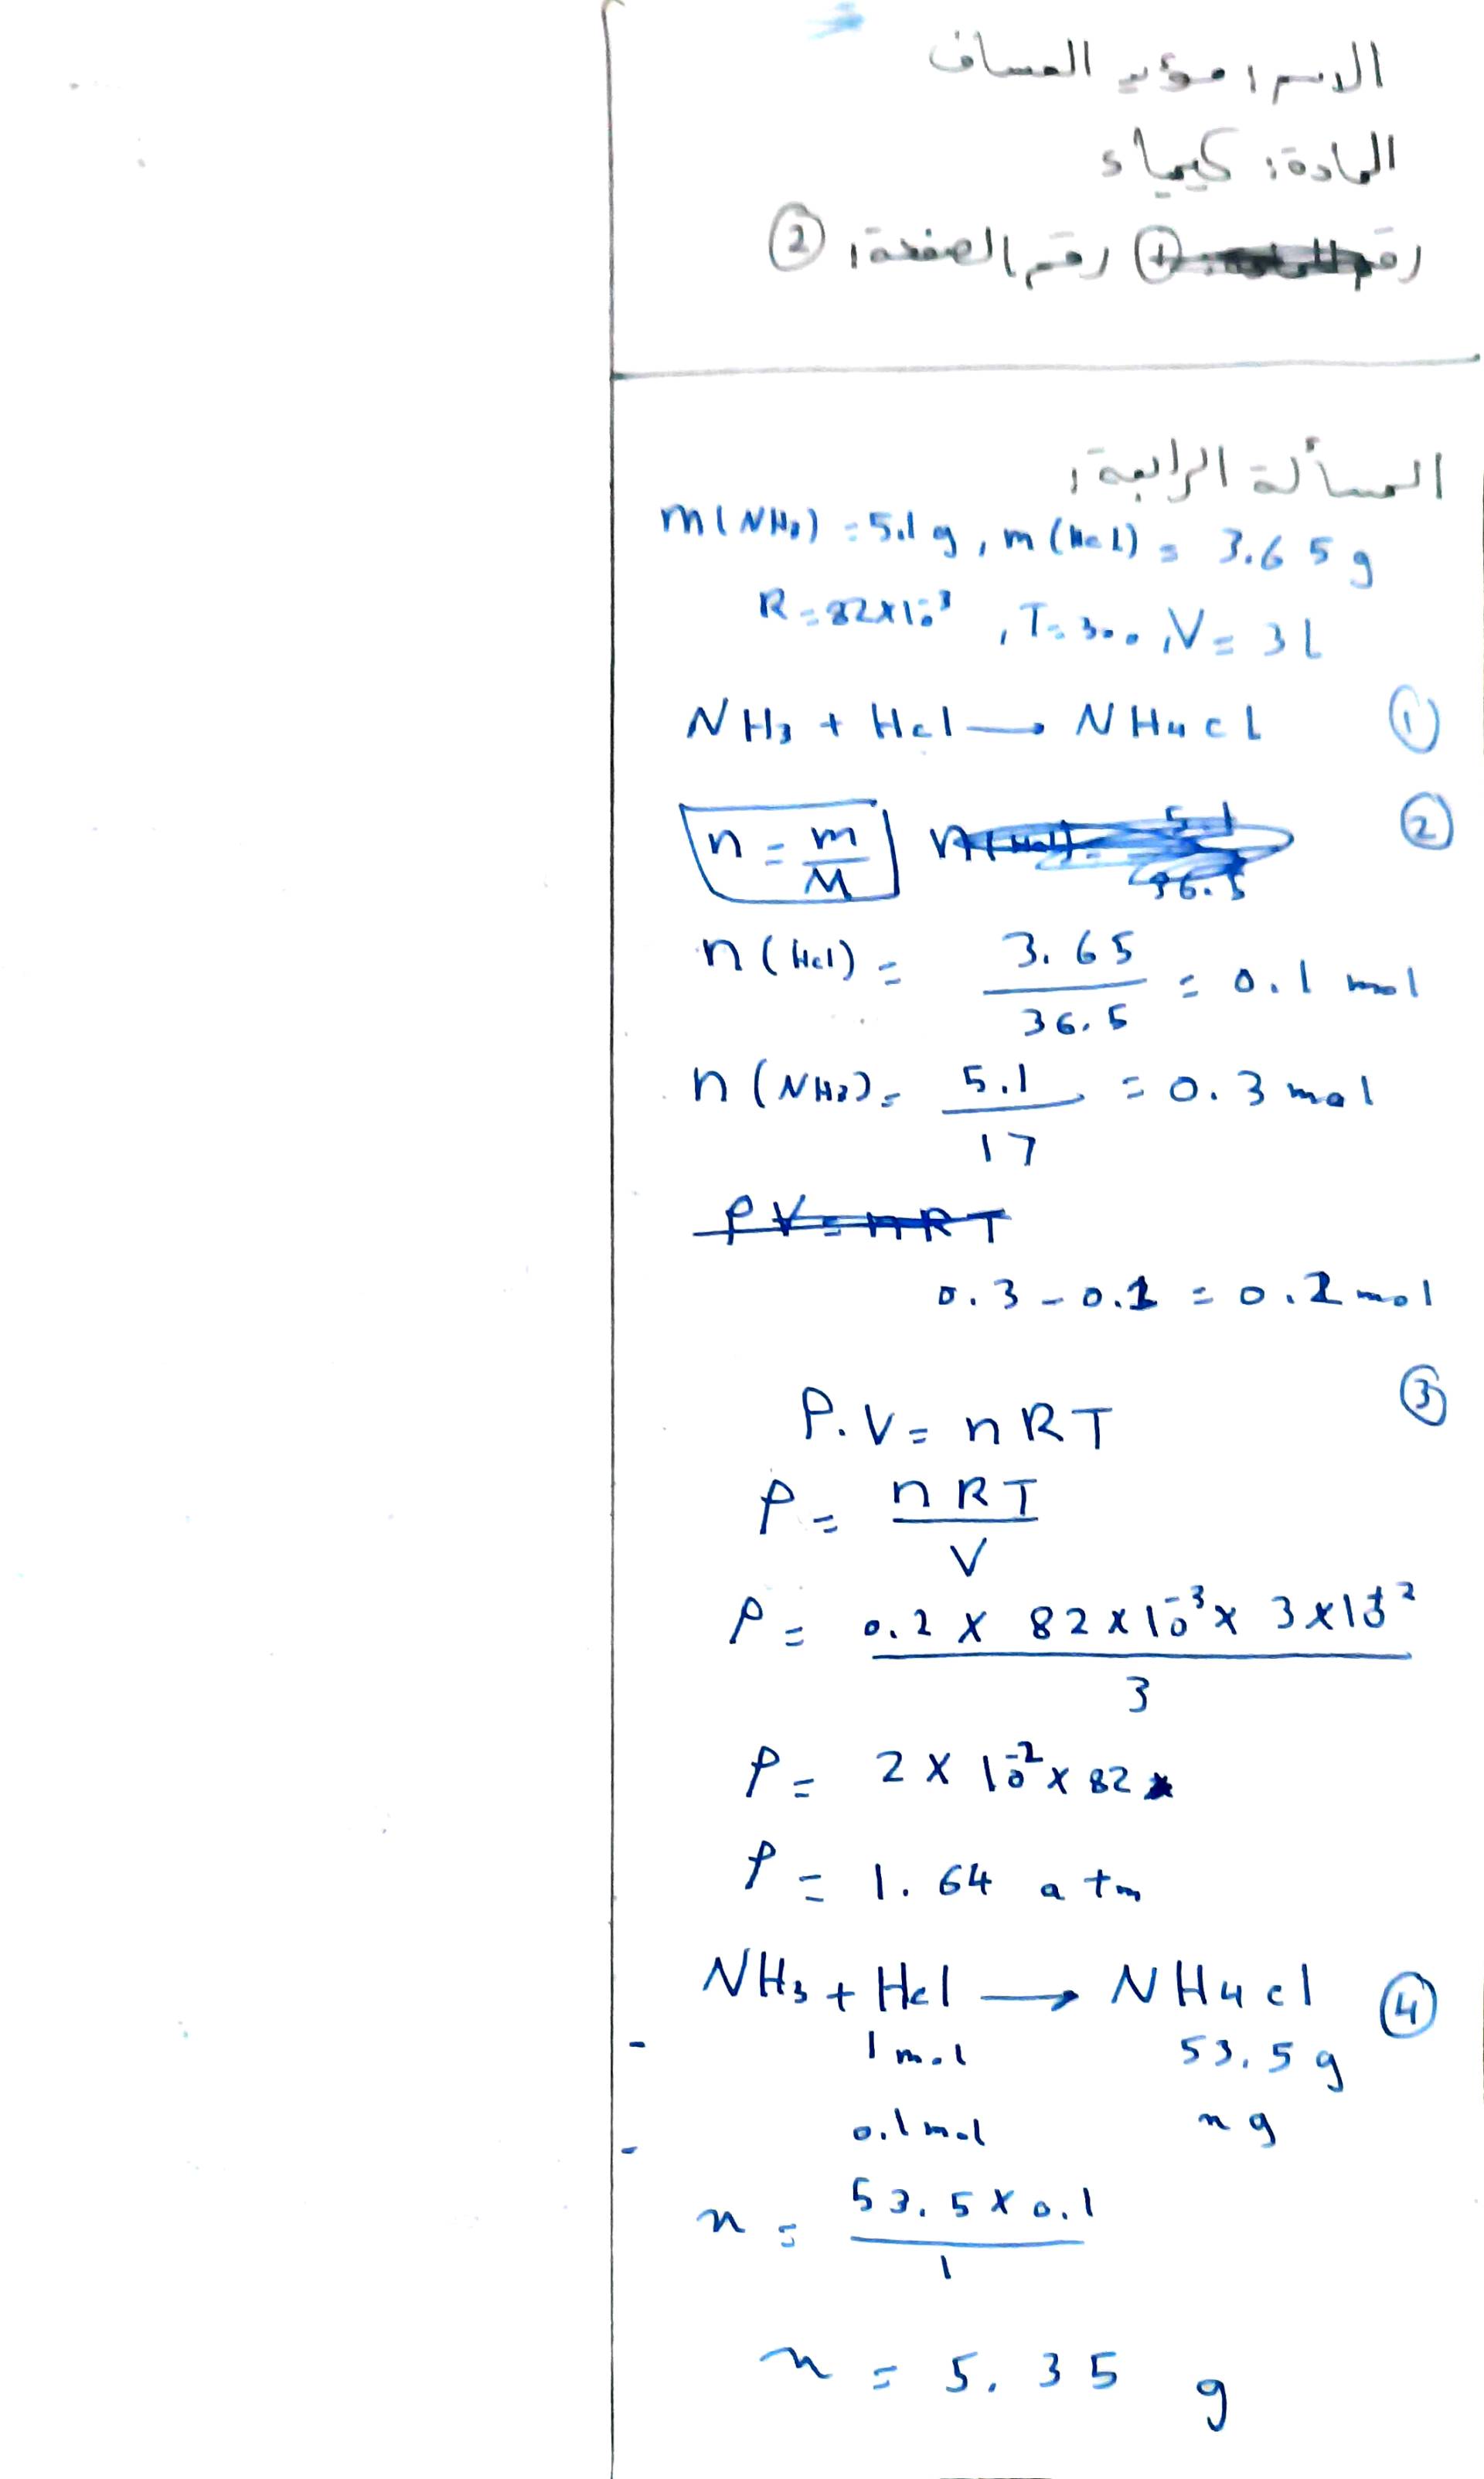 الاسم: مؤيد العساف
المادة: كيمياء
رقم الصفحة: ②
المسألة الرابعة:
m(NH₃) = 5.1 g , m(Hcl) = 3.65 g
R = 82×10⁻³ , T = 300 , V = 3 L
NH₃ + Hcl → NH₄cl ①
n = m/M ②
n(Hcl) = 3.65/36.5 = 0.1 mol
n(NH₃) = 5.1/17 = 0.3 mol
PV = nRT
0.3 - 0.1 = 0.2 mol
P.V = nRT ③
P = nRT/V
P = 0.2 × 82×10⁻³ × 3×10²/3
P = 2 × 10⁻² × 82
P = 1.64 atm
NH₃ + Hcl → NH₄cl ④
1 mol 53.5 g
0.1 mol n g
n = 53.5 × 0.1/1
n = 5.35 g